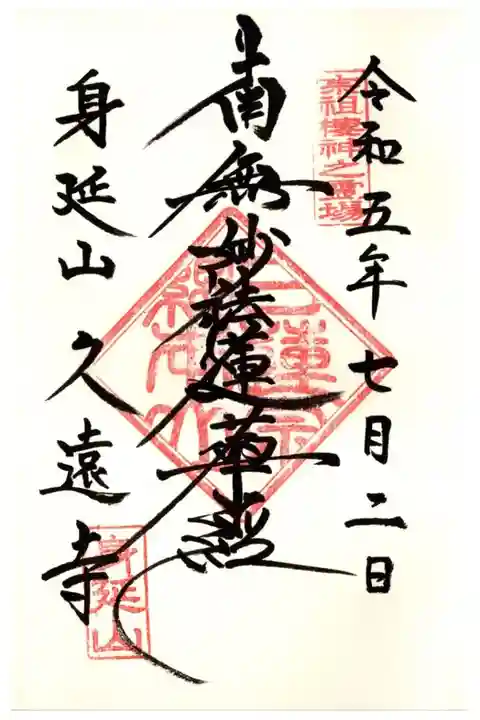 宗祖棲神之霊場
令和五年七月二日
南無妙法蓮華経
身延山久遠寺
身延山